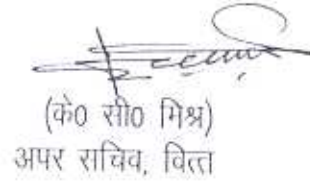 (के0 सी0 मिश्र)
अपर सचिव, वित्त